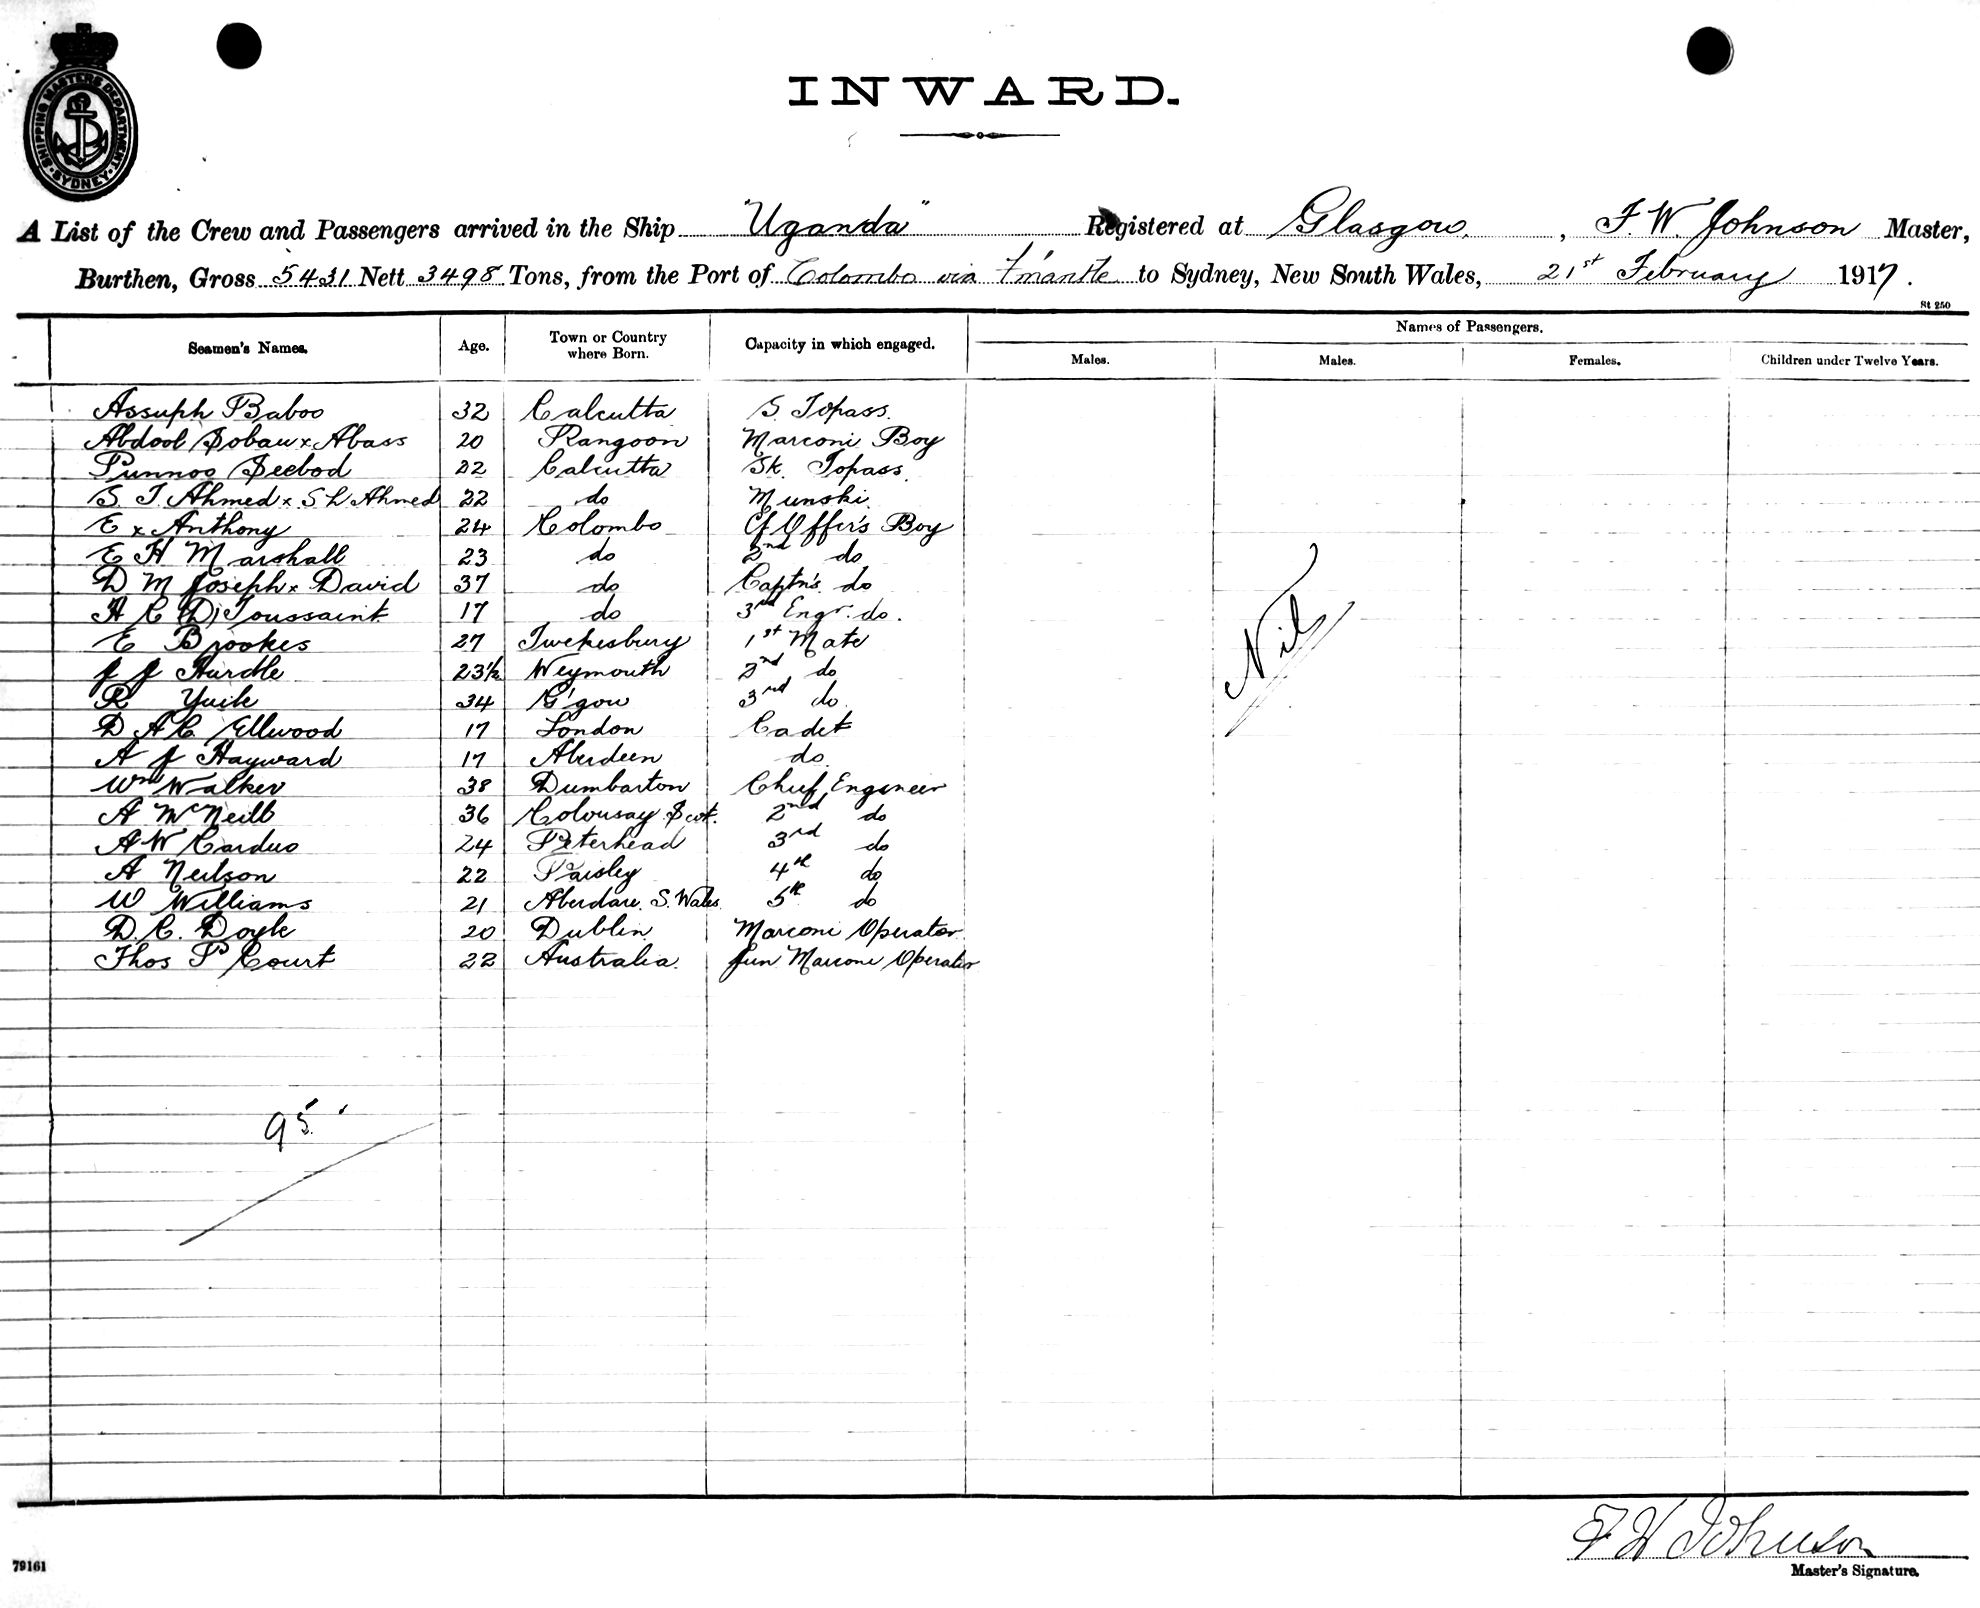 SHIPPING MASTERS DEPARTMENT · SYDNEY ·
INWARD.
A List of the Crew and Passengers arrived in the Ship "Uganda" Registered at Glasgow, F. W. Johnson Master,
Burthen, Gross 5431 Nett 3498 Tons, from the Port of Colombo via F'mantle to Sydney, New South Wales, 21st February 1917.
St 250
Seamen's Names. Age. Town or Country where Born. Capacity in which engaged. Names of Passengers.
Males. Males. Females. Children under Twelve Years.
Assuph Baboo 32 Calcutta S. Topass.
Abdool Sobau x Abass 20 Rangoon Marconi Boy
Punnoo Seebod 22 Calcutta Sk. Topass.
S I Ahmed x S L Ahmed 22 do Munski.
E x Anthony 24 Colombo Cf Offer's Boy
E H Marshall 23 do 2nd do
D M Joseph x David 37 do Captn's do
H C (D) Toussaint 17 do 3rd Engr. do.
E Brookes 27 Twekesbury 1st Mate
J J Hurdle 23½ Weymouth 2nd do
R Yuile 34 G'gow 3rd do
D A C Ellwood 17 London Cadet
A J Hayward 17 Aberdeen do.
Wm Walker 38 Dumbarton Chief Engineer
A McNeill 36 Colousay Scot. 2nd do
A W Carduo 24 Peterhead 3rd do
A Neilson 22 Paisley 4th do
W Williams 21 Aberdare. S. Wales. 5th do
D. C. Doyle 20 Dublin Marconi Operator.
Thos P Court 22 Australia. Jun Marconi Operator
Nil
95
F W Johnson
Master's Signature.
79161